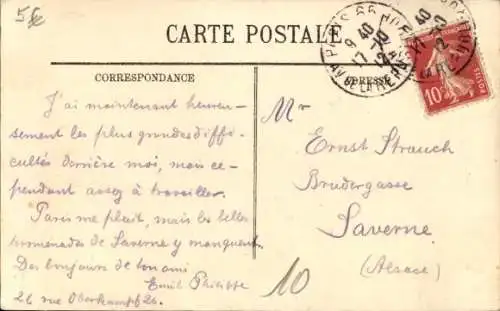 CARTE POSTALE
CORRESPONDANCE
ADRESSE
J'ai maintenant heureu-
sement les plus grandes diffi-
cultés derrière moi, mais ce-
pendant assez à travailler.
Paris me plait, mais les belles
promenades de Saverne y manquent.
Des bonjours de ton ami
Emil Philippe
26 rue Oberkampf 26.
Mr
Ernst Strauch
Brudergasse
Saverne
(Alsace)
10
10